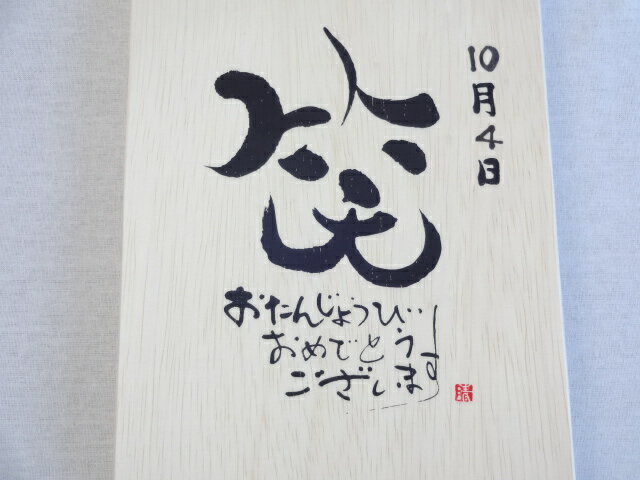 10月4日
笑
おたんじょうび
おめでとう
ございます